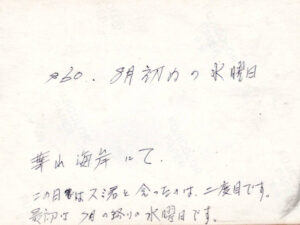 '60. 8月初めの水曜日
葉山海岸にて.
この日はスミ君と会ったのは、二度目です。
最初は7月の終りの水曜日です。